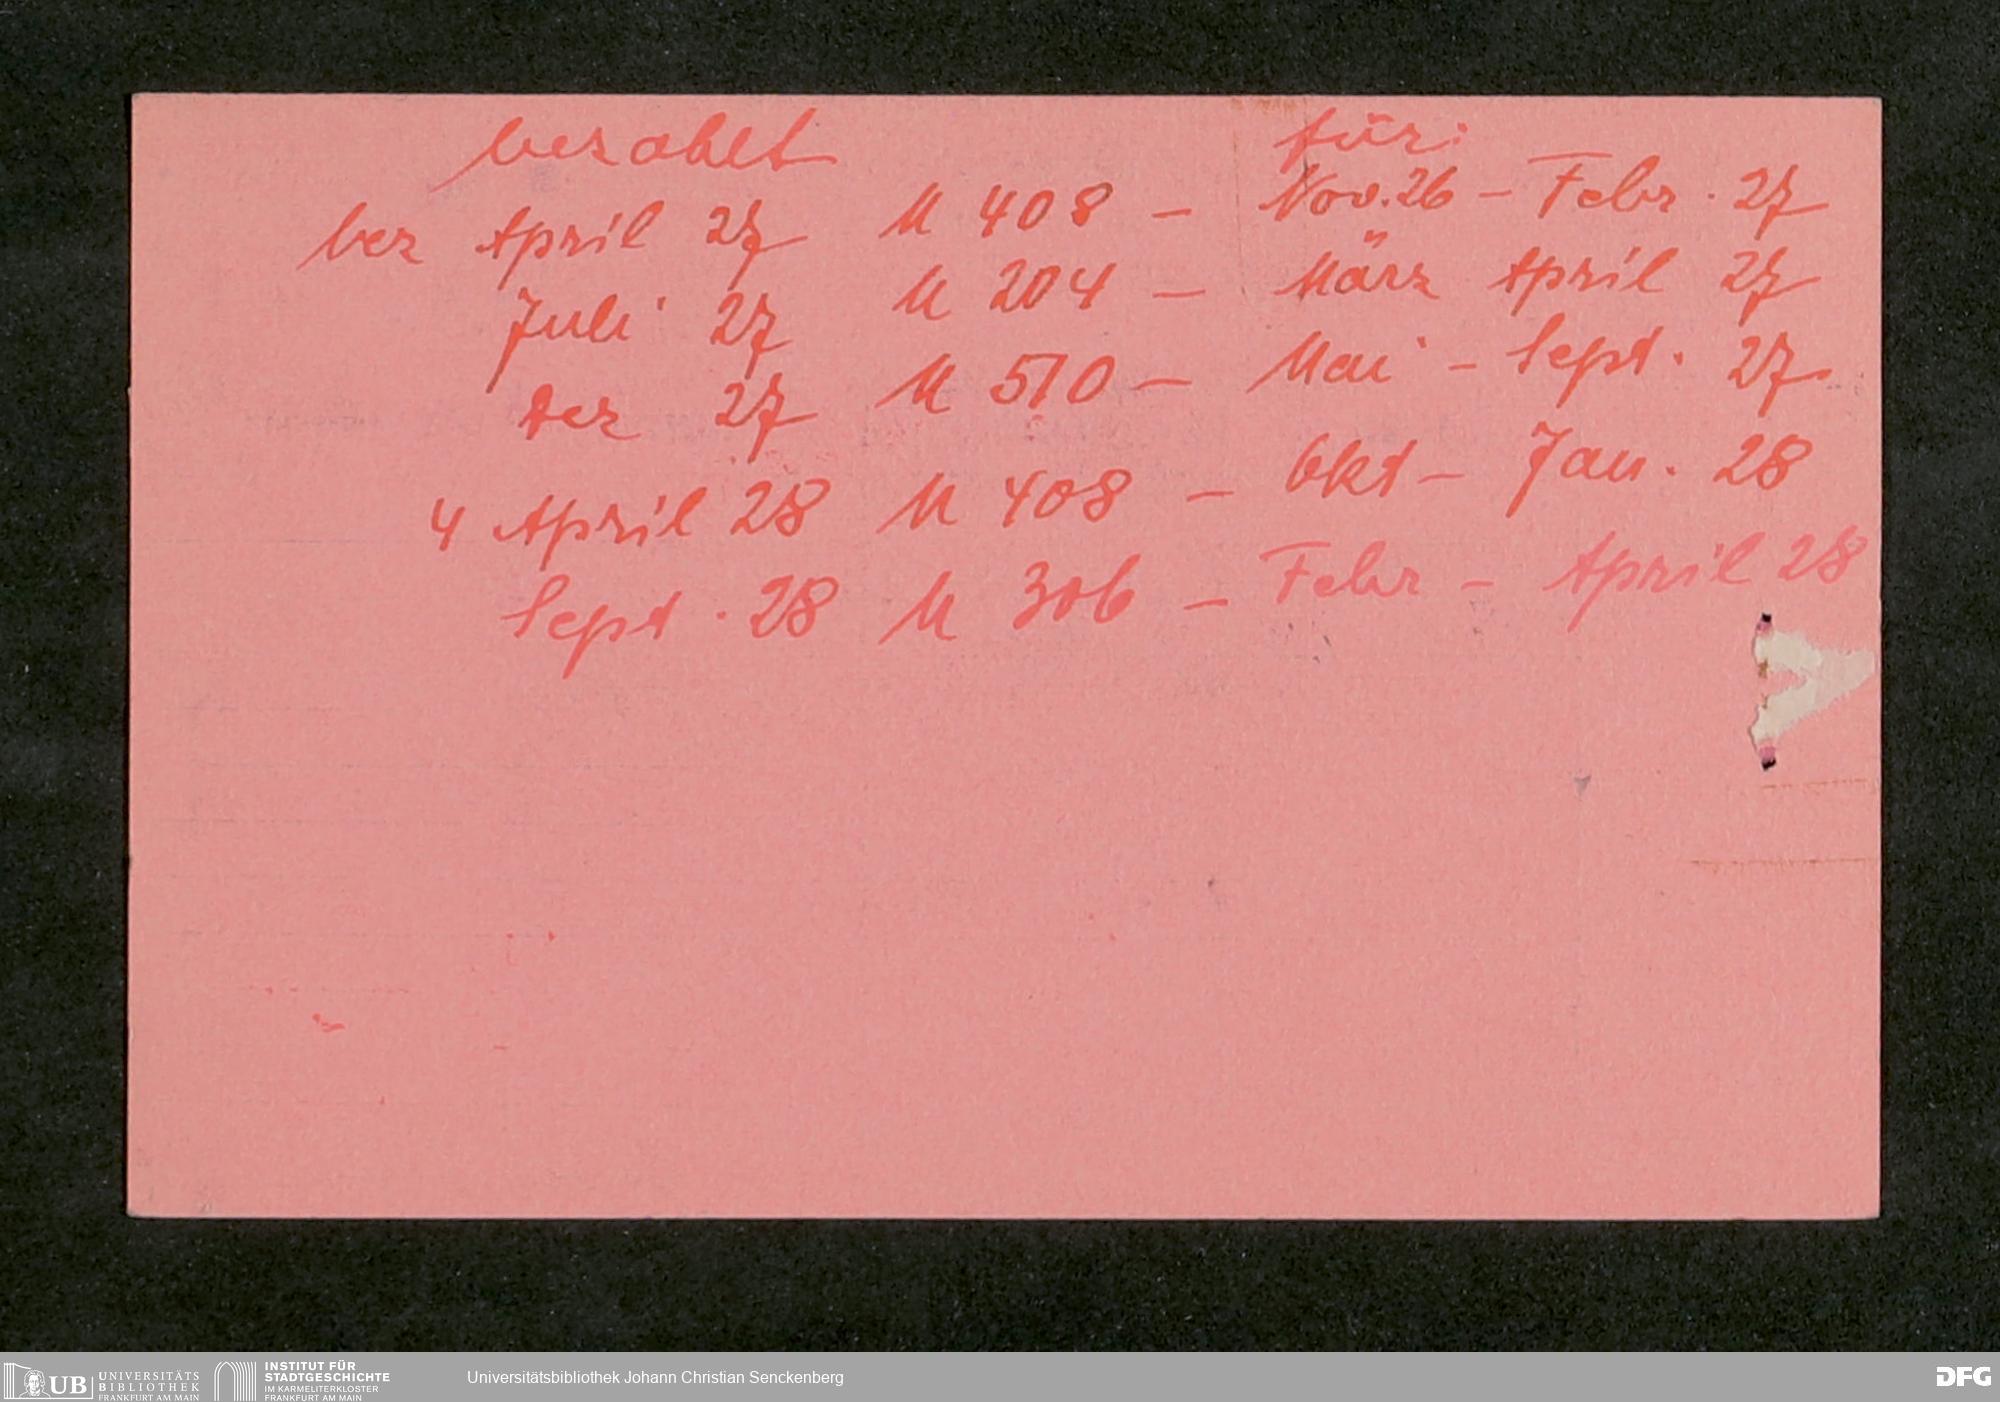 bezahlt für:
bez April 27 M 408 – Nov. 26 – Febr. 27
Juli 27 M 204 – März April 27
Dez 27 M 510 – Mai – Sept. 27.
4 April 28 M 408 – Okt – Jan. 28
Sept. 28 M 306 – Febr – April 28
UB UNIVERSITÄTS BIBLIOTHEK FRANKFURT AM MAIN
INSTITUT FÜR STADTGESCHICHTE IM KARMELITERKLOSTER FRANKFURT AM MAIN
Universitätsbibliothek Johann Christian Senckenberg
DFG